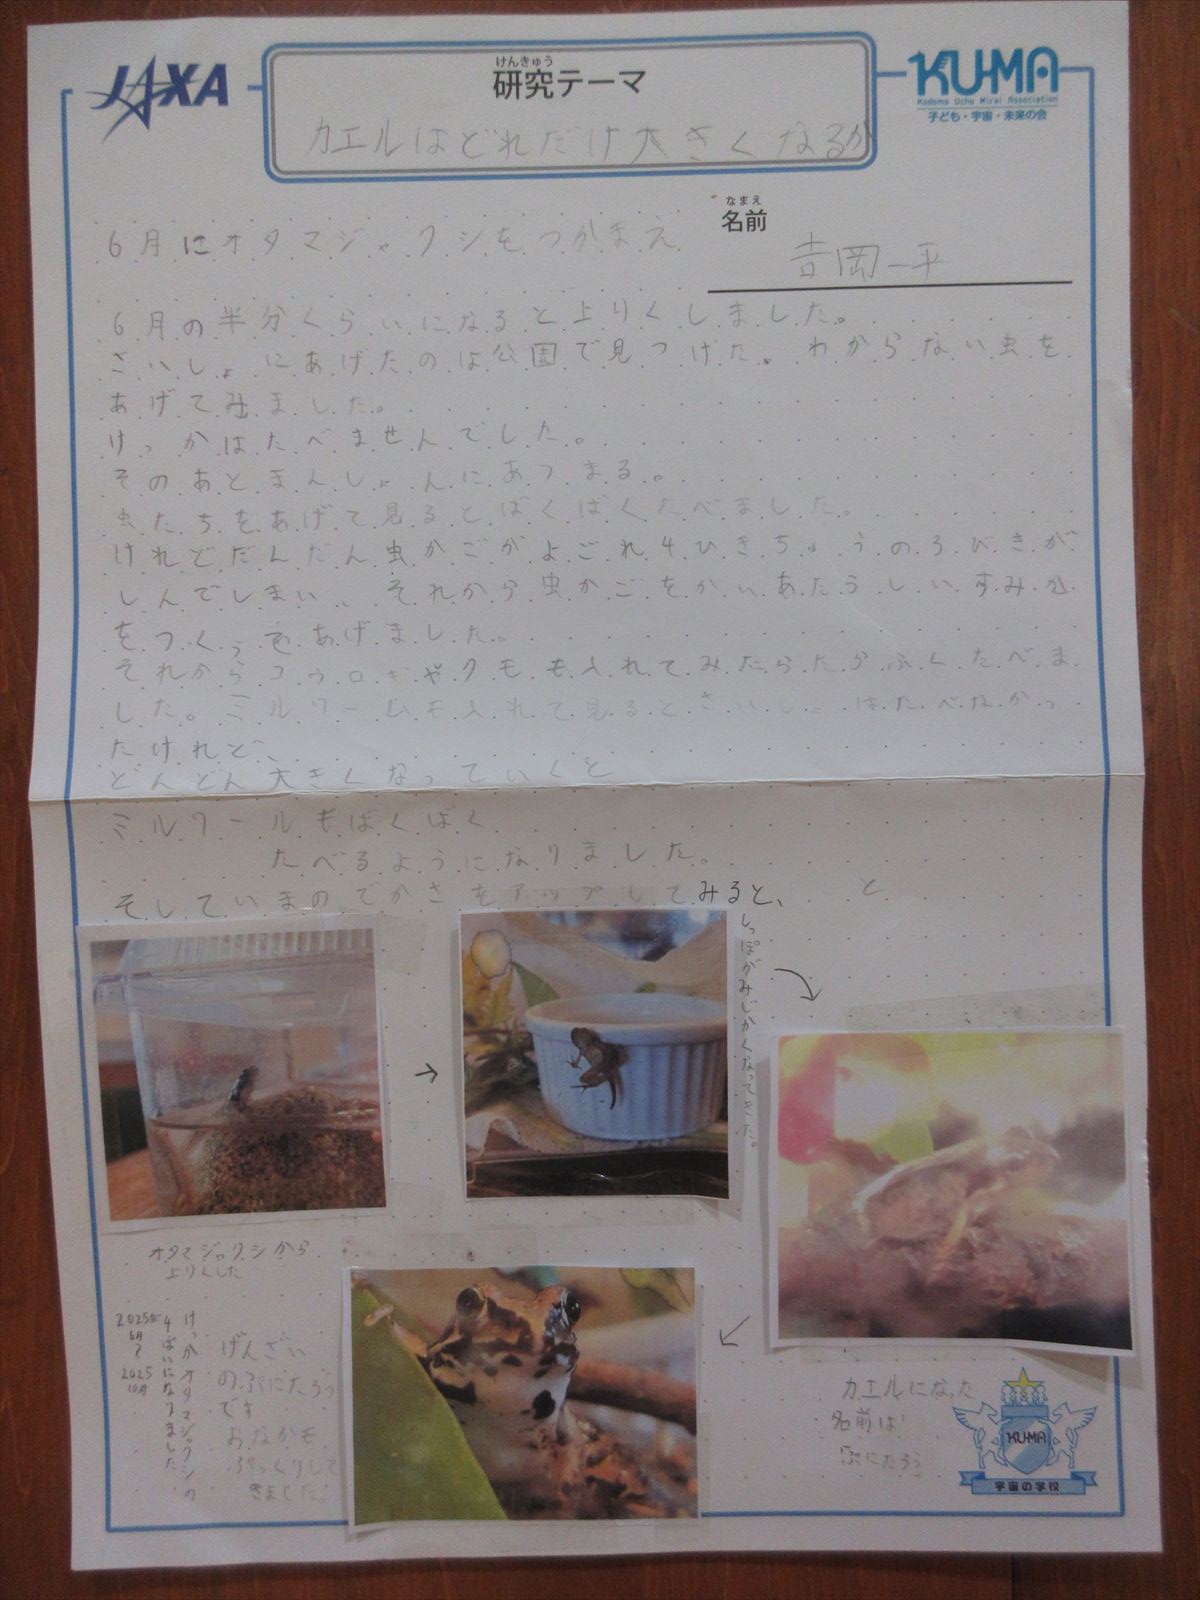 JAXA
けんきゅう
研究テーマ
カエルはどれだけ大きくなるか
KU-MA
Kodomo Uchu Mirai Association
子ども・宇宙・未来の会
なまえ
名前
吉岡一平
6月にオタマジャクシをつかまえ
6月の半分くらいになると上りくしました。
さいしょにあげたのは公園で見つけた。わからない虫を
あげてみました。
けっかはたべませんでした。
そのあとまんしょんにあつまる。
虫たちをあげて見るとばくばくたべました。
けれどだんだん虫かごがよごれ4ひきちゅうの3びきが
しんでしまい、それから虫かごをかいあたらしいすみか
をつくってあげました。
それからコウロギやクモも入れてみたらたかふくたべま
した。ミルワームも入れて見るとさいしょはたべなかっ
たけれど、
どんどん大きくなっていくと
ミルワールもばくばく
たべるようになりました。
そしていまのでかさをアップしてみると、
と
しっぽがみじかくなってきた。
→
オタマジャクシから
上りくした
けっかオタマジャクシの
4ばいになりました
2025年
6月
2025
10月
げんざい
のぷにたろう
です
おなかも
ぷっくりして
きました。
カエルになった
名前は
ぷにたろう
KU-MA
宇宙の学校